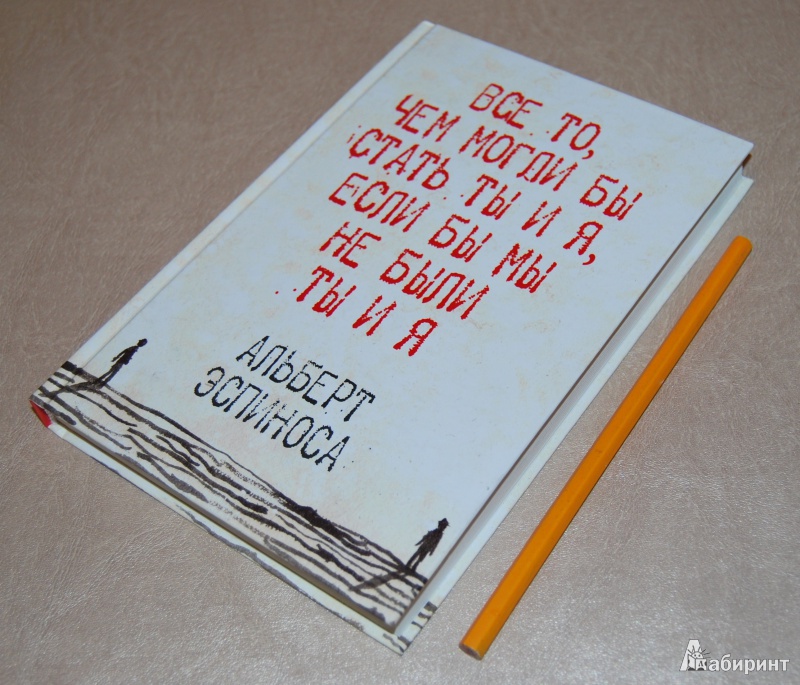 ВСЕ ТО,
ЧЕМ МОГЛИ БЫ
СТАТЬ ТЫ И Я,
ЕСЛИ БЫ МЫ
НЕ БЫЛИ
ТЫ И Я
АЛЬБЕРТ
ЭСПИНОСА
Лабиринт